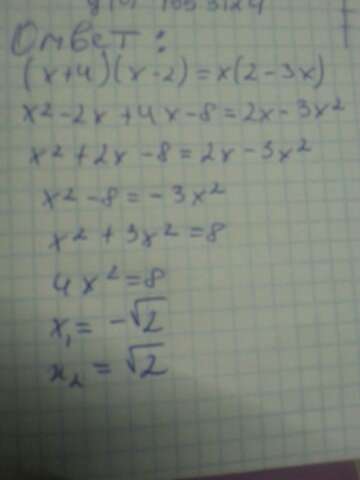 Ответ:
(x+4)(x-2)=x(2-3x)
x²-2x+4x-8=2x-3x²
x²+2x-8=2x-3x²
x²-8=-3x²
x²+3x²=8
4x²=8
x₁=-√2
x₂=√2